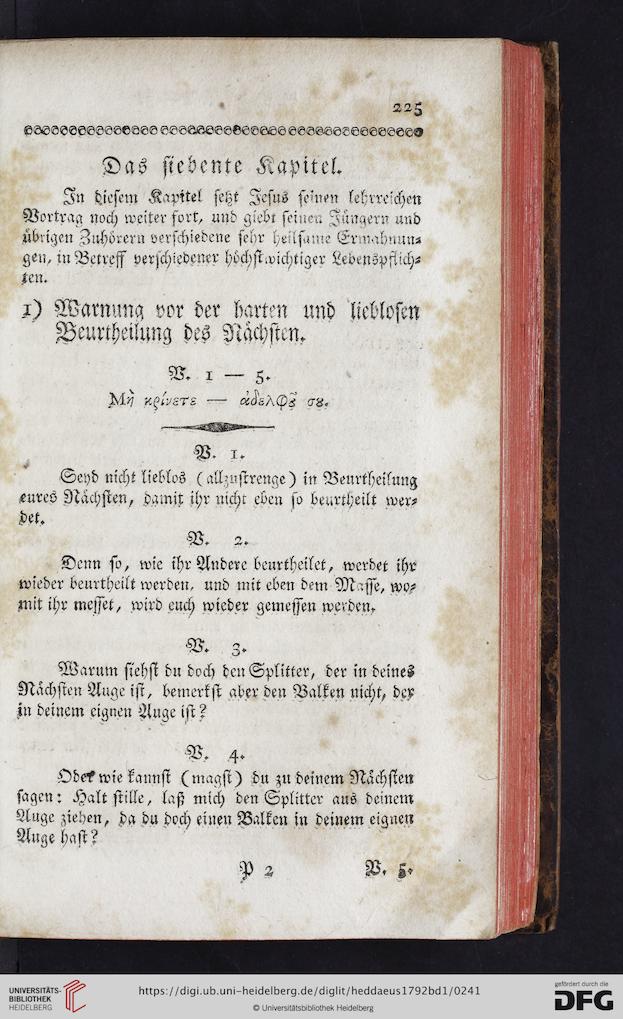 225
Das siebente Kapitel.
In diesem Kapitel setzt Jesus seinen lehrreichen
Vortrag noch weiter fort, und giebt seinen Jüngern und
übrigen Zuhörern verschiedene sehr heilsame Ermahnun-
gen, in Betreff verschiedener höchstwichtiger Lebenspflich-
ten.
1) Warnung vor der harten und lieblosen
Beurtheilung des Nächsten.
V. 1 — 5.
Μὴ κρίνετε — ἀδελφοῦ σου.
V. 1.
Seyd nicht lieblos (allzustrenge) in Beurtheilung
eures Nächsten, damit ihr nicht eben so beurtheilt wer-
det.
V. 2.
Denn so, wie ihr Andere beurtheilet, werdet ihr
wieder beurtheilt werden, und mit eben dem Masse, wo-
mit ihr messet, wird euch wieder gemessen werden.
V. 3.
Warum siehst du doch den Splitter, der in deines
Nächsten Auge ist, bemerkst aber den Balken nicht, der
in deinem eignen Auge ist?
V. 4.
Oder wie kannst (magst) du zu deinem Nächsten
sagen: Halt stille, laß mich den Splitter aus deinem
Auge ziehen, da du doch einen Balken in deinem eignen
Auge hast?
P 2 V. 5.
UNIVERSITÄTS-
BIBLIOTHEK
HEIDELBERG
https://digi.ub.uni-heidelberg.de/diglit/heddaeus1792bd1/0241
© Universitätsbibliothek Heidelberg
gefördert durch die
DFG